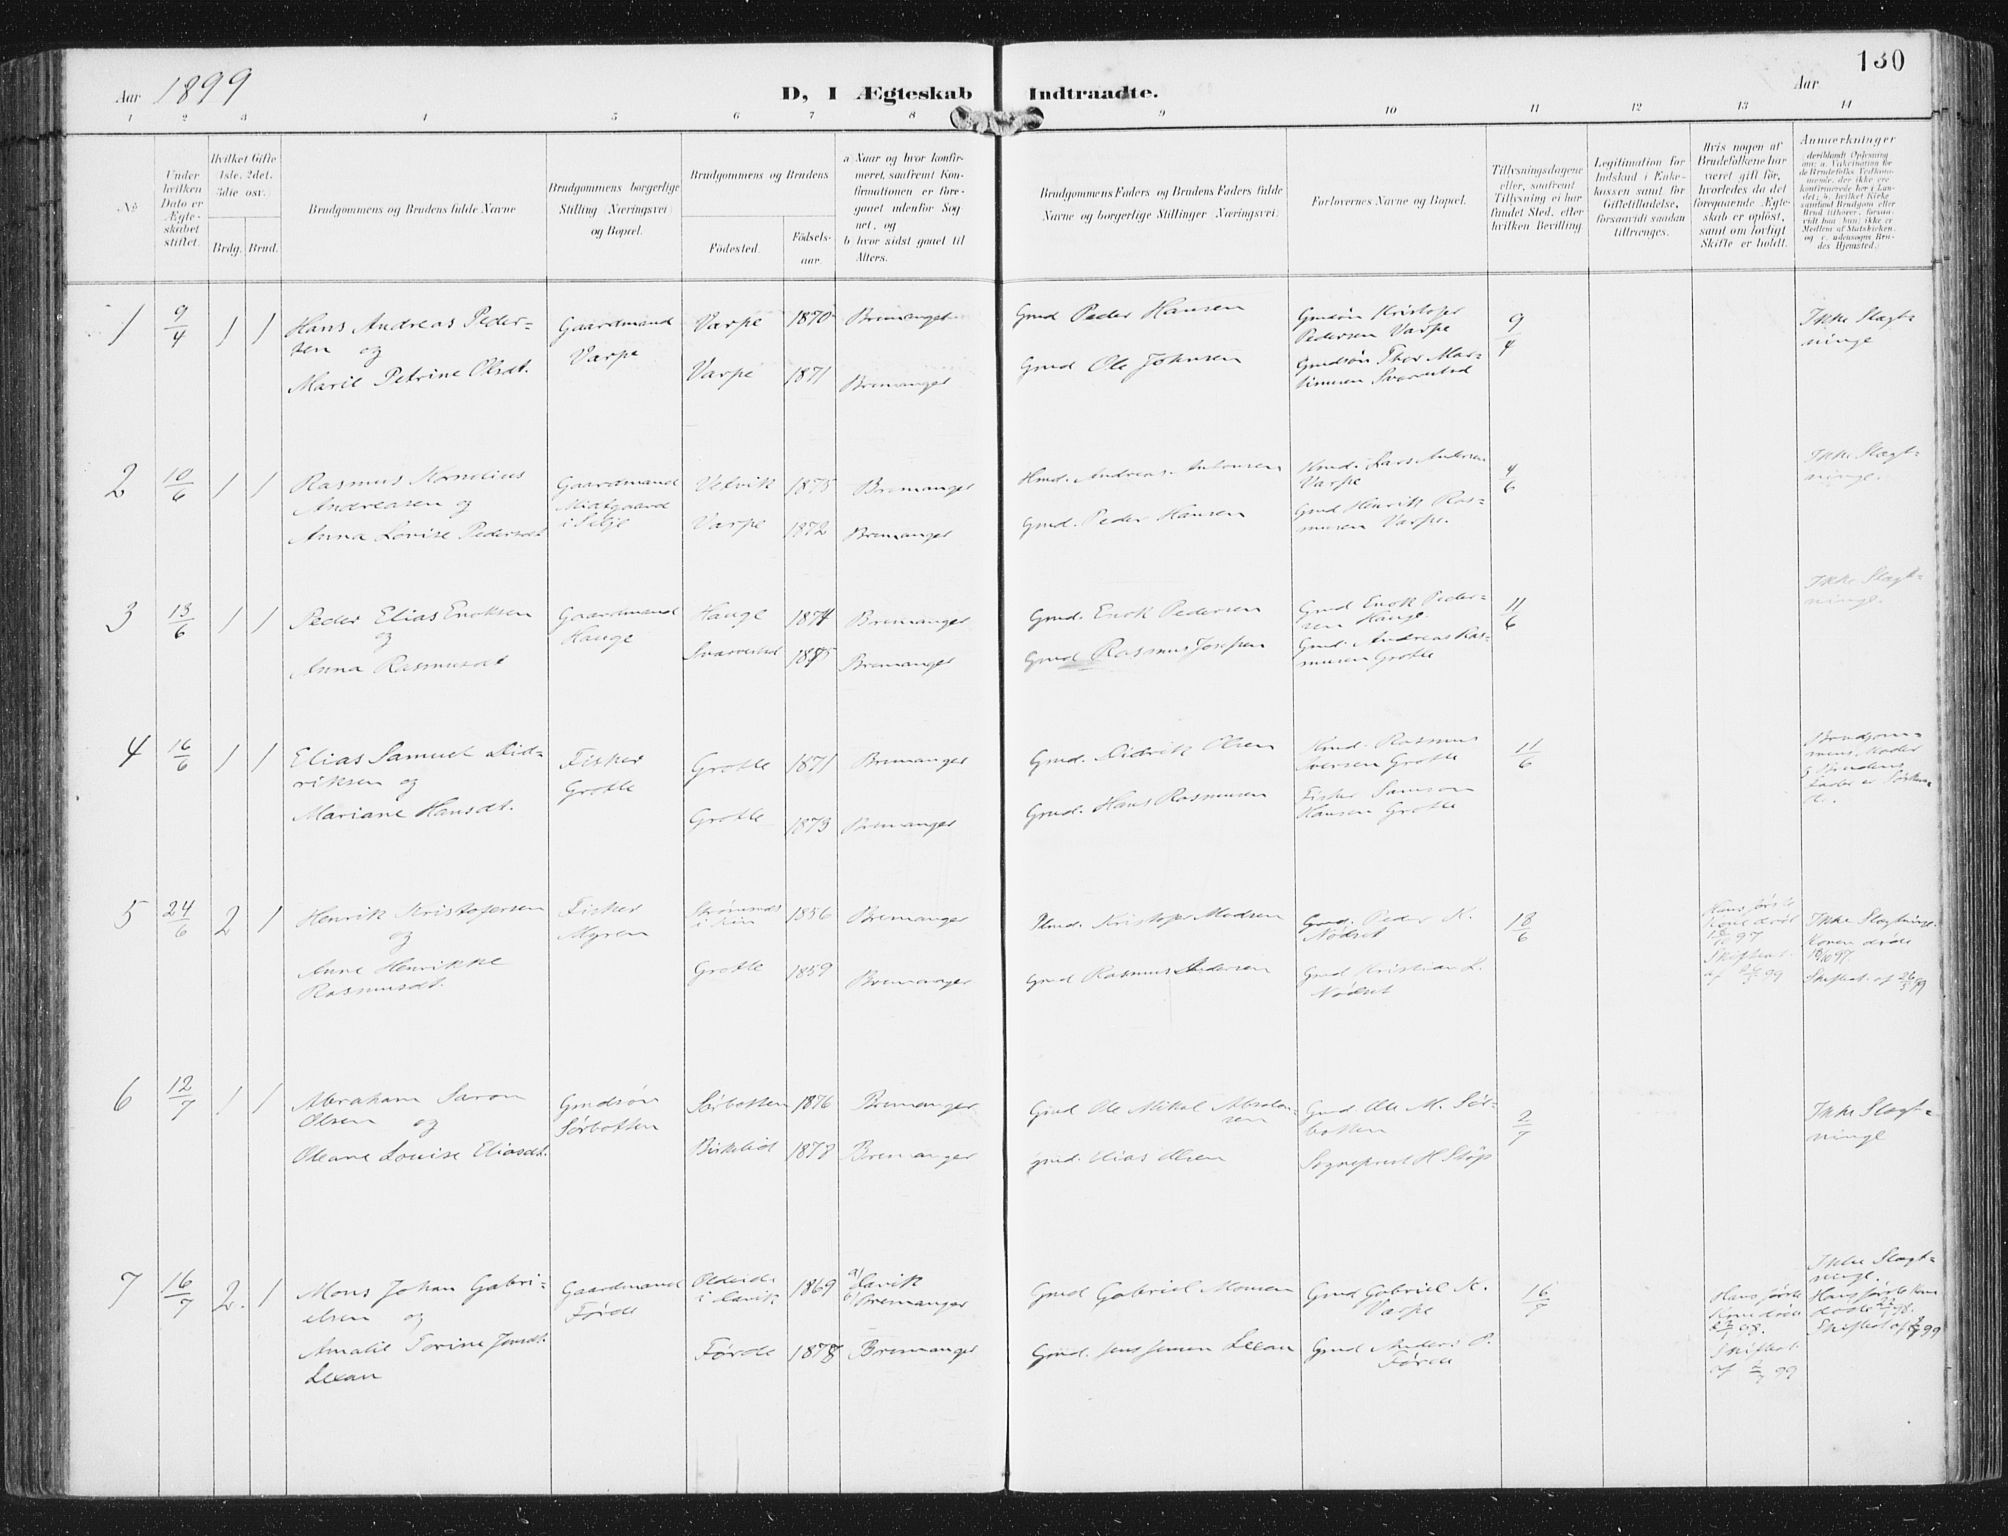 Aar 1899
D, I Ægteskab Indtraadte.
Aar
130
1 2 3 4 5 6 7 8 9 10 11 12 13 14
No
Under hvilken Dato er Ægteskabet stiftet.
Hvilket Gifte 1ste, 2det, 3die osv.
Brdg. Brud.
Brudgommens og Brudens fulde Navne
Brudgommens borgerlige Stilling (Næringsvei) og Bopæl.
Brudgommens og Brudens
Fødested.
Fødselsaar.
a Naar og hvor konfirmeret, saafremt Konfirmationen er foregaaet udenfor Sognet, og
b hvor sidst gaaet til Alters.
Brudgommens Faders og Brudens Faders fulde Navne og borgerlige Stillinger (Næringsvei)
Forlovernes Navne og Bopæl.
Tillysningsdagene eller, saafremt Tillysning ei har fundet Sted, efter hvilken Bevilling.
Legitimation for Indskud i Enkekassen samt for Giftetilladelse, forsaavidt saadan tiltrænges.
Hvis nogen af Brudefolkene har været gift før, hvorledes da det foregaaende Ægteskab er opløst, samt om lovligt Skifte er holdt.
Anmærkninger
1 9/4 1 1 Hans Andreas Pedersen og Gaardmand Varpe Varpe 1870 Bremanger Gmd Peder Hansen Gmdsøn Kristofer Pedersen Varpe 9/4 Ikke Slægtninge
Marie Petrine Olsdt. Varpe 1871 Bremanger Gmd Ole Johnsen Gmdsøn Thor Martinusen
2 10/6 1 1 Rasmus Kornelius Andreasen og Gaardmand Midtgaard i Selje Vetvik 1875 Bremanger Hmd. Andreas Antonsen Kmd. Lars Andersen Varpe 4/6 Ikke Slægtninge.
Anna Lovise Pedersdt Varpe 1872 Bremanger Gmd. Peder Hansen Gmd Henrik Rasmusen Varpe.
3 13/6 1 1 Peder Elias Enoksen og Gaardmand Hauge Hauge 1874 Bremanger Gmd. Enok Pedersen Gmd Enok Pedersen Hauge 11/6 Ikke Slægtninge.
Anna Rasmusdt Svarrestad 1875 Bremanger Gmd Rasmus Josefsen Gmd. Andreas Rasmusen Grotle
4 16/6 1 1 Elias Samuel Didriksen og Fisker Grotle Grotle 1871 Bremanger Gmd. Didrik Olsen Kmd. Rasmus Iversen Grotle 11/6 Brudgommens Moder & Brudens Fader er
Mariane Hansdt. Grotle 1873 Bremanger Gmd. Hans Rasmusen Fisker Samson Hansen Grotle
5 24/6 2 1 Henrik Kristofersen og Fisker Myren i Kin 1856 Bremanger Kristofer Madsen Gmd. Peder K. Nødset 18/6 Hans første Kone død 18/10 97 Skifteat. af 26/5 99 Ikke Slægtninge. Konen døde 18/10 97. Skifteat. af 26/5 99
Anne Henrikke Rasmusdt. Grotle 1859 Bremanger Gmd Rasmus Andersen Gmd Kristian L. Nødset
6 12/7 1 1 Abraham Saron Olsen og Gmdsøn Sørbotten Sørbotten 1876 Bremanger Gmd Ole Mikal Absalonsen Gmd Ole M. Sørbotten 2/7 Ikke Slægtninge
Oleane Louise Eliasdt. Birkelid 1878 Bremanger gmd. Elias Olsen Sogneprest H Støp
7 16/7 2. 1 Mons Johan Gabrielsen og Gaardmand Førde i Lavik 1869 a) Lavik b) Bremanger Gmd Gabriel Monsen Gmd Gabriel K. Varpe 16/7 Hans første Kone døde Skifteat. af 99 Ikke Slægtninge. Hans første Kone døde Skifteat af 99
Amalie Torine Jensdt. Lexau Førde 1878 Bremanger Gmd. Jens Jensen Lexau Gmd Anders P. Førde